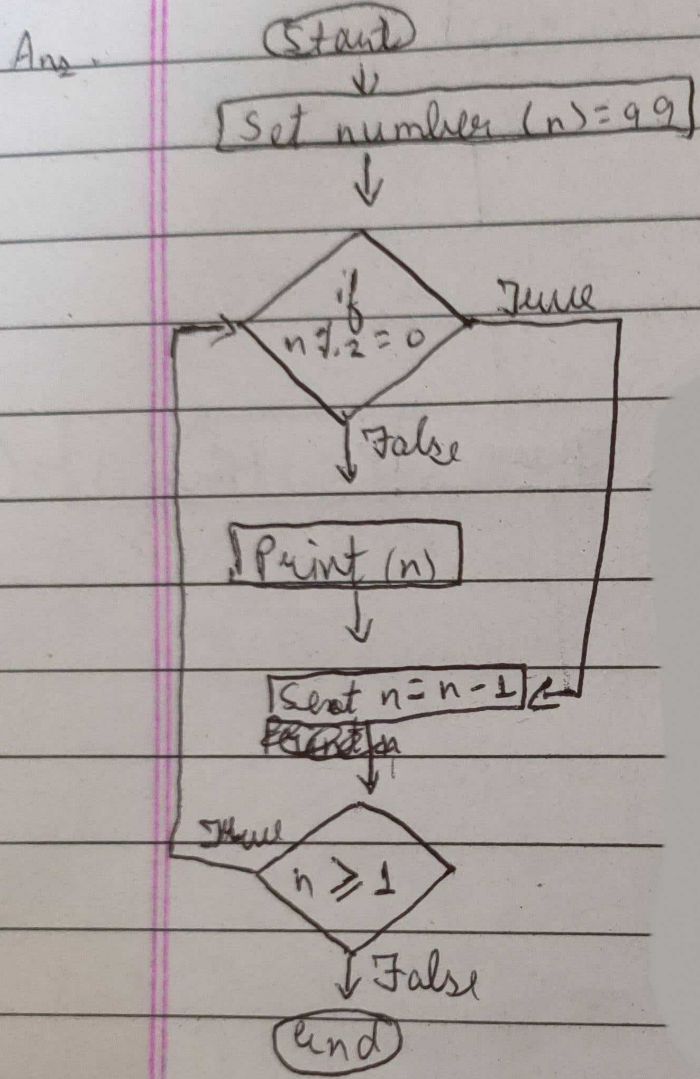 Ans.
Start
Set number (n) = 99
if
n % 2 = 0
True
False
Print (n)
Set n = n - 1
True
n ≥ 1
False
End